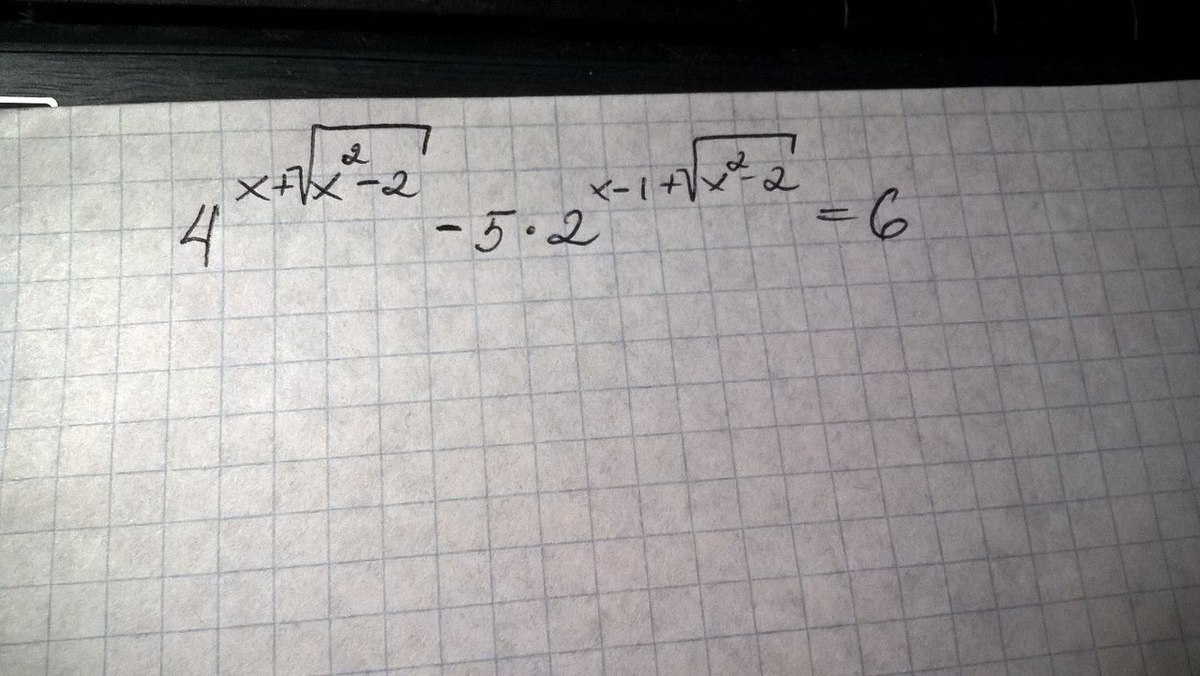 4^{x+\sqrt{x^2-2}} - 5 \cdot 2^{x-1+\sqrt{x^2-2}} = 6